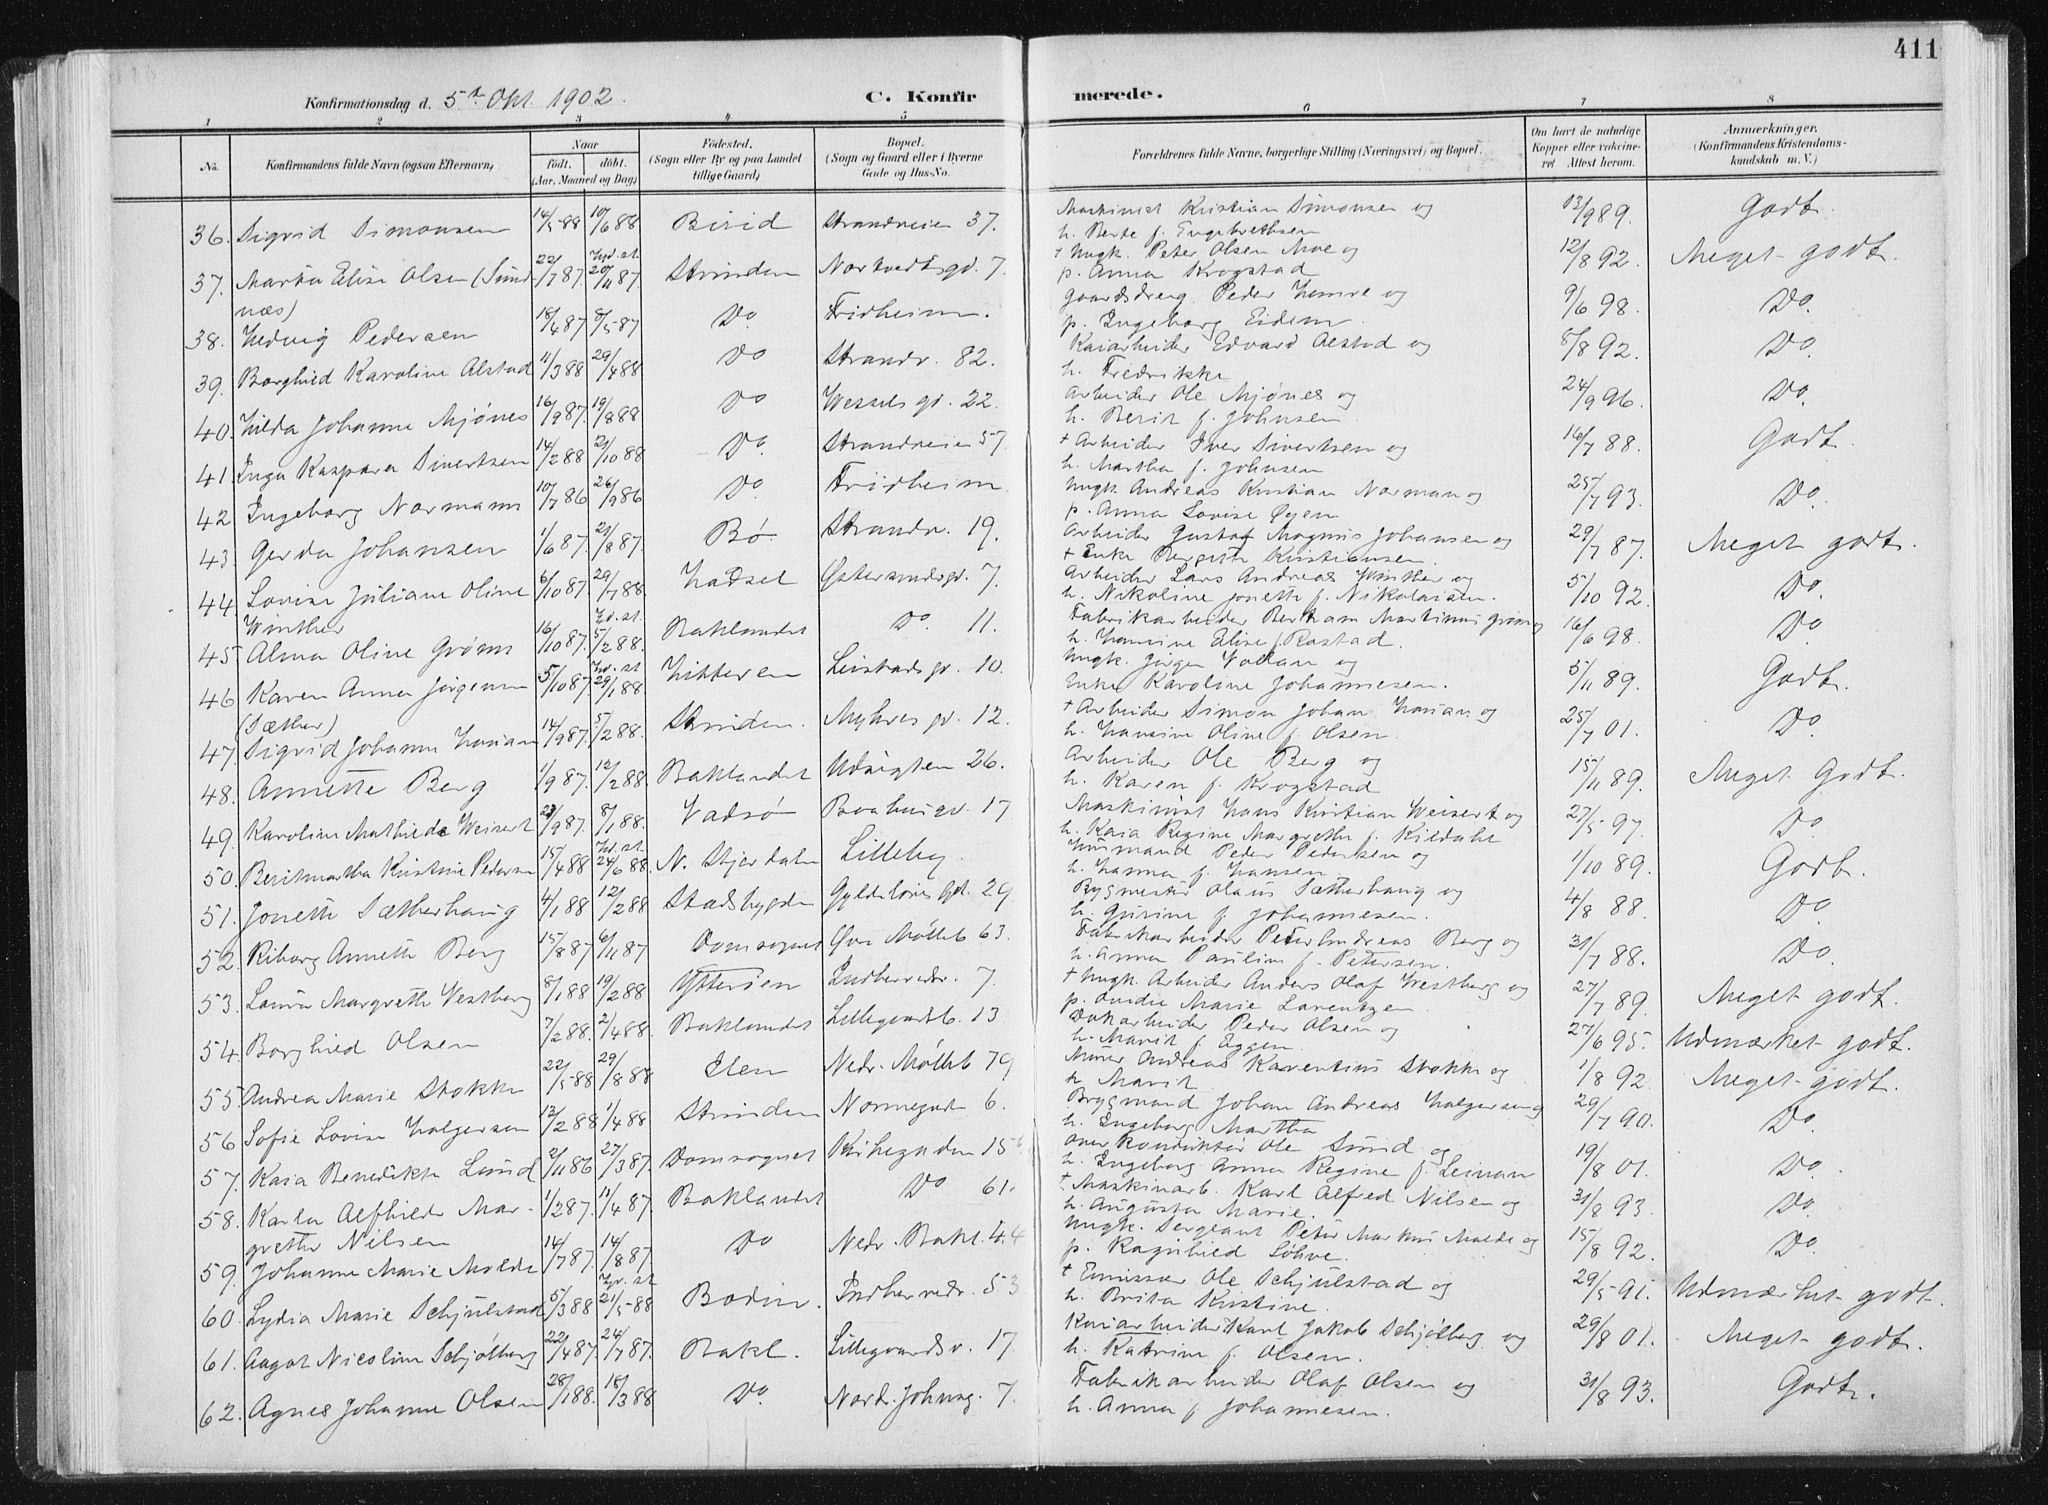 411
Konfirmationsdag d. 5t Okt. 1902. C. Konfirmerede.
1 2 3 4 5 6 7 8
No. Konfirmandens fulde Navn (ogsaa Efternavn) Naar født, døbt. (Aar, Maaned og Dag) Fødested. (Sogn eller By og paa Landet tillige Gaard) Bopæl. (Sogn og Gaard eller i Byerne Gade og Hus-No. Forældrenes fulde Navne, borgerlige Stilling (Næringsvei) og Bopæl. Om havt de naturlige Kopper eller vakcineret Attest herom. Anmærkninger. (Konfirmandens Kristendomskundskab m. V.)
36. Sigrid Simonsen 14/5 88 10/6 88 Birid Strandveien 37. Maskinist Kristian Simonsen og h. Berte f. Engebrethsen 13/9 89. Godt.
37. Marta Elise Olsen (Sundnæs) 22/7 87. Hjd. st. 20/11 87. Strinden Nortvedtsgd. 7. + Ungk. Peter Olsen Moe og p. Anna Krogstad 12/8 92. Meget godt.
38. Hedvig Pedersen 18/4 87 8/5 87 Do Fridheim. Gaardsdreng Peder og p. Ingeborg Eidem 9/6 98. Do.
39. Borghild Karoline Alstad 11/3 88 29/4 88 Do Strandv. 82. Kaiarbeider Edvard Alstad og h. Fredrikke 8/8 92. Do.
40. Hilda Johanne Mjønes 16/9 87. 19/8 88 Do Wessels gd. 22. Arbeider Ole Mjønes og h. Berit f. Johnsen 24/9 96. Do.
41. Inga Kaspara Sivertsen 14/2 88 21/10 88 Do. Strandveien 57 + Arbeider Iver Sivertsen og h. Martha f. Johnsen 16/7 88. Godt.
42. Ingeborg Normann 10/7 86 26/9 86 Do Fridheim Ungk. Andreas Kristian Norman og p. Anna Lovise Øyen 25/7 93. Do.
43 Gerda Johansen 1/6 87. 21/8 87. Bø. Strandv. 19. Arbeider Gustaf Magnus Johansen og + Enke Bergitte Kristiansen. 29/7 87. Meget godt.
44. Lovise Juliane Oline Winther 6/10 87 29/7 88. Hadsel Østersundsgd. 7. Arbeider Lars Andreas Winther og h. Nikoline Jonette f. Nikolaisen. 5/10 92. Do.
45. Alma Oline Grønn 16/10 87. Hd. st. 5/2 88. Baklandet Do. 11. Fabrikarbeider Bertram Martinus Grøn og h. Hansine Elise f. Rostad. 16/6 98. Do
46 Karen Anna Jørgensen (Sæther) 5/10 87 Hd. st 29/1 88. Hitteren Leistadsgd. 10. Ungk. Jørgen Vollan og Enke Karoline Johannesen. 5/11 89. Godt.
47. Sigrid Johanne Hanan 14/9 87. 5/2 88. Strinden. Myhres gd. 12. + Arbeider Simon Johan Hanan og h. Hansine Oline f. Olsen. 25/7 01. Do.
48. Annette Berg 1/9 87. 12/2 88. Baklandet Udsigten 26. Arbeider Ole Berg og h. Karen f. Krogstad 15/11 89. Meget Godt.
49. Karoline Mathilde Weisert 23/9 87. 8/1 88. Vadsø Baahusgd. 17 Maskinist Hans Kristian Weisert og h. Kaia Regine Margrethe f. Kildahl 27/5 97. Do.
50. Beritmartha Kristine Pedersen 15/4 88 Hd. st. 24/6 88. N. Stjørdalen Lilleby. Husmand Peder Pedersen og h. Hanna f. Hansen 1/10 89. Godt.
51. Jonette Sætherhaug 4/1 88 12/2 88 Stadsbygden Gyldenløves Gd. 29 Bygmester Olaus Sætherhaug og h. Gurine f. Johannesen. 4/8 88. Do.
52. Riborg Annette Berg 15/8 87 6/11 87 Domsognet Øvr. Møllebk. 63. Fabrikarbeider Peter Andreas Berg og h. Anna Pauline f. Petersen. 31/7 88. Do.
53. Laura Margrethe Vestberg 8/1 88 19/2 88 Ytterøen Indherredv. 7. + Ungk. Arbeider Anders Olaf Westberg og p. Ovidie Marie Larentzen 27/7 89. Meget godt.
54. Borghild Olsen 7/2 88. 2/4 88. Baklandet Lillegaardsb. 13 Dokarbeider Peder Olsen og h. Marit f. Eggen. 27/6 95. Udmærket godt.
55. Andrea Marie Stokke 22/5 88 29/8 88 Ilen Nedr. Møllebk 79 Murer Andreas Laurentius Stokke og h. Marit 1/8 92. Meget godt.
56. Sofie Lovise Holgersen 13/2 88 1/4 88 Strinden Nonnegaden 6. Brygmand Johan Andreas Holgersen og h. Ingeborg Martha 29/7 90. Do.
57. Kaia Benedikte Lund 2/11 86 27/3 87. Domsognet Kirkegaden 15 Overkonduktør Ole Lund og h. Ingeborg Anna Regine f. Leinan 19/8 01. Do.
58. Karla Alfhilde Margrethe Nilsen 1/2 87. 11/4 87. Baklandet Do 61. + Maskinarb. Karl Alfred Nilsen og h. Augusta Marie. 31/8 93. Do.
59. Johanne Marie Molde 14/7 87. 14/8 87 Do Nedr. Bakl. 44 Ungk. Sergeant Peter Markus Molde og p. Ragnhild Løhve. 15/8 92. Do.
60. Lydia Marie Schjulstad 5/3 88 Hd. st 21/5 88 Bodin. Indherredv. 53 + Emissær Ole Schjulstad og h. Brita Kristine. 29/5 91. Udmærket godt.
61. Aagot Nicoline Schjølberg 22/4 87. 24/7 87. Bakl. Lillegaardsv. 17. Kaiarbeider Karl Jakob Schjølberg og h. Katrine f. Olsen. 29/8 01. Meget godt.
62. Agnes Johanne Olsen 28/1 88. 18/3 88 Do. Nordr. Johnsg. 7. Fabrikarbeider Olaf Olsen og h. Anna f. Johannesen. 31/8 93. Godt.